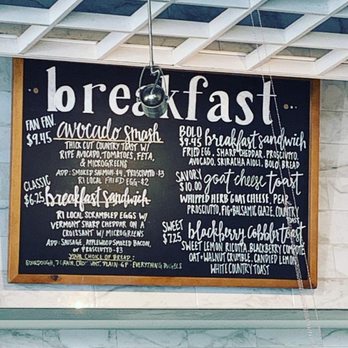 breakfast
FAN FAV
$9.45
avocado smash
THICK CUT COUNTRY TOAST W/
RIPE AVOCADO, TOMATOES, FETA,
& MICROGREENS
ADD: SMOKED SALMON-$4, PROSCIUTTO-$3
RI LOCAL FRIED EGG-$2
CLASSIC
$6.25
breakfast sandwich
RI LOCAL SCRAMBLED EGGS W/
VERMONT SHARP CHEDDAR ON A
CROISSANT W/ MICROGREENS
ADD: SAUSAGE, APPLEWOOD SMOKED BACON,
OR PROSCIUTTO-$3
YOUR CHOICE OF BREAD:
SOURDOUGH, 7 GRAIN, PLAIN EVERYTHING
BOLD
$9.45
breakfast sandwich
FRIED EGG, SHARP CHEDDAR, PROSCIUTTO,
AVOCADO, SRIRACHA AIOLI, BOLD BREAD
SAVORY
$10.00
goat cheese toast
WHIPPED HERB GOAT CHEESE, PEAR,
PROSCIUTTO, FIG+BALSAMIC GLAZE, COUNTRY
SWEET
$7.25
blackberry cobbler toast
SWEET LEMON RICOTTA, BLACKBERRY COMPOTE
OAT+WALNUT CRUMBLE, CANDIED LEMON
WHITE COUNTRY TOAST